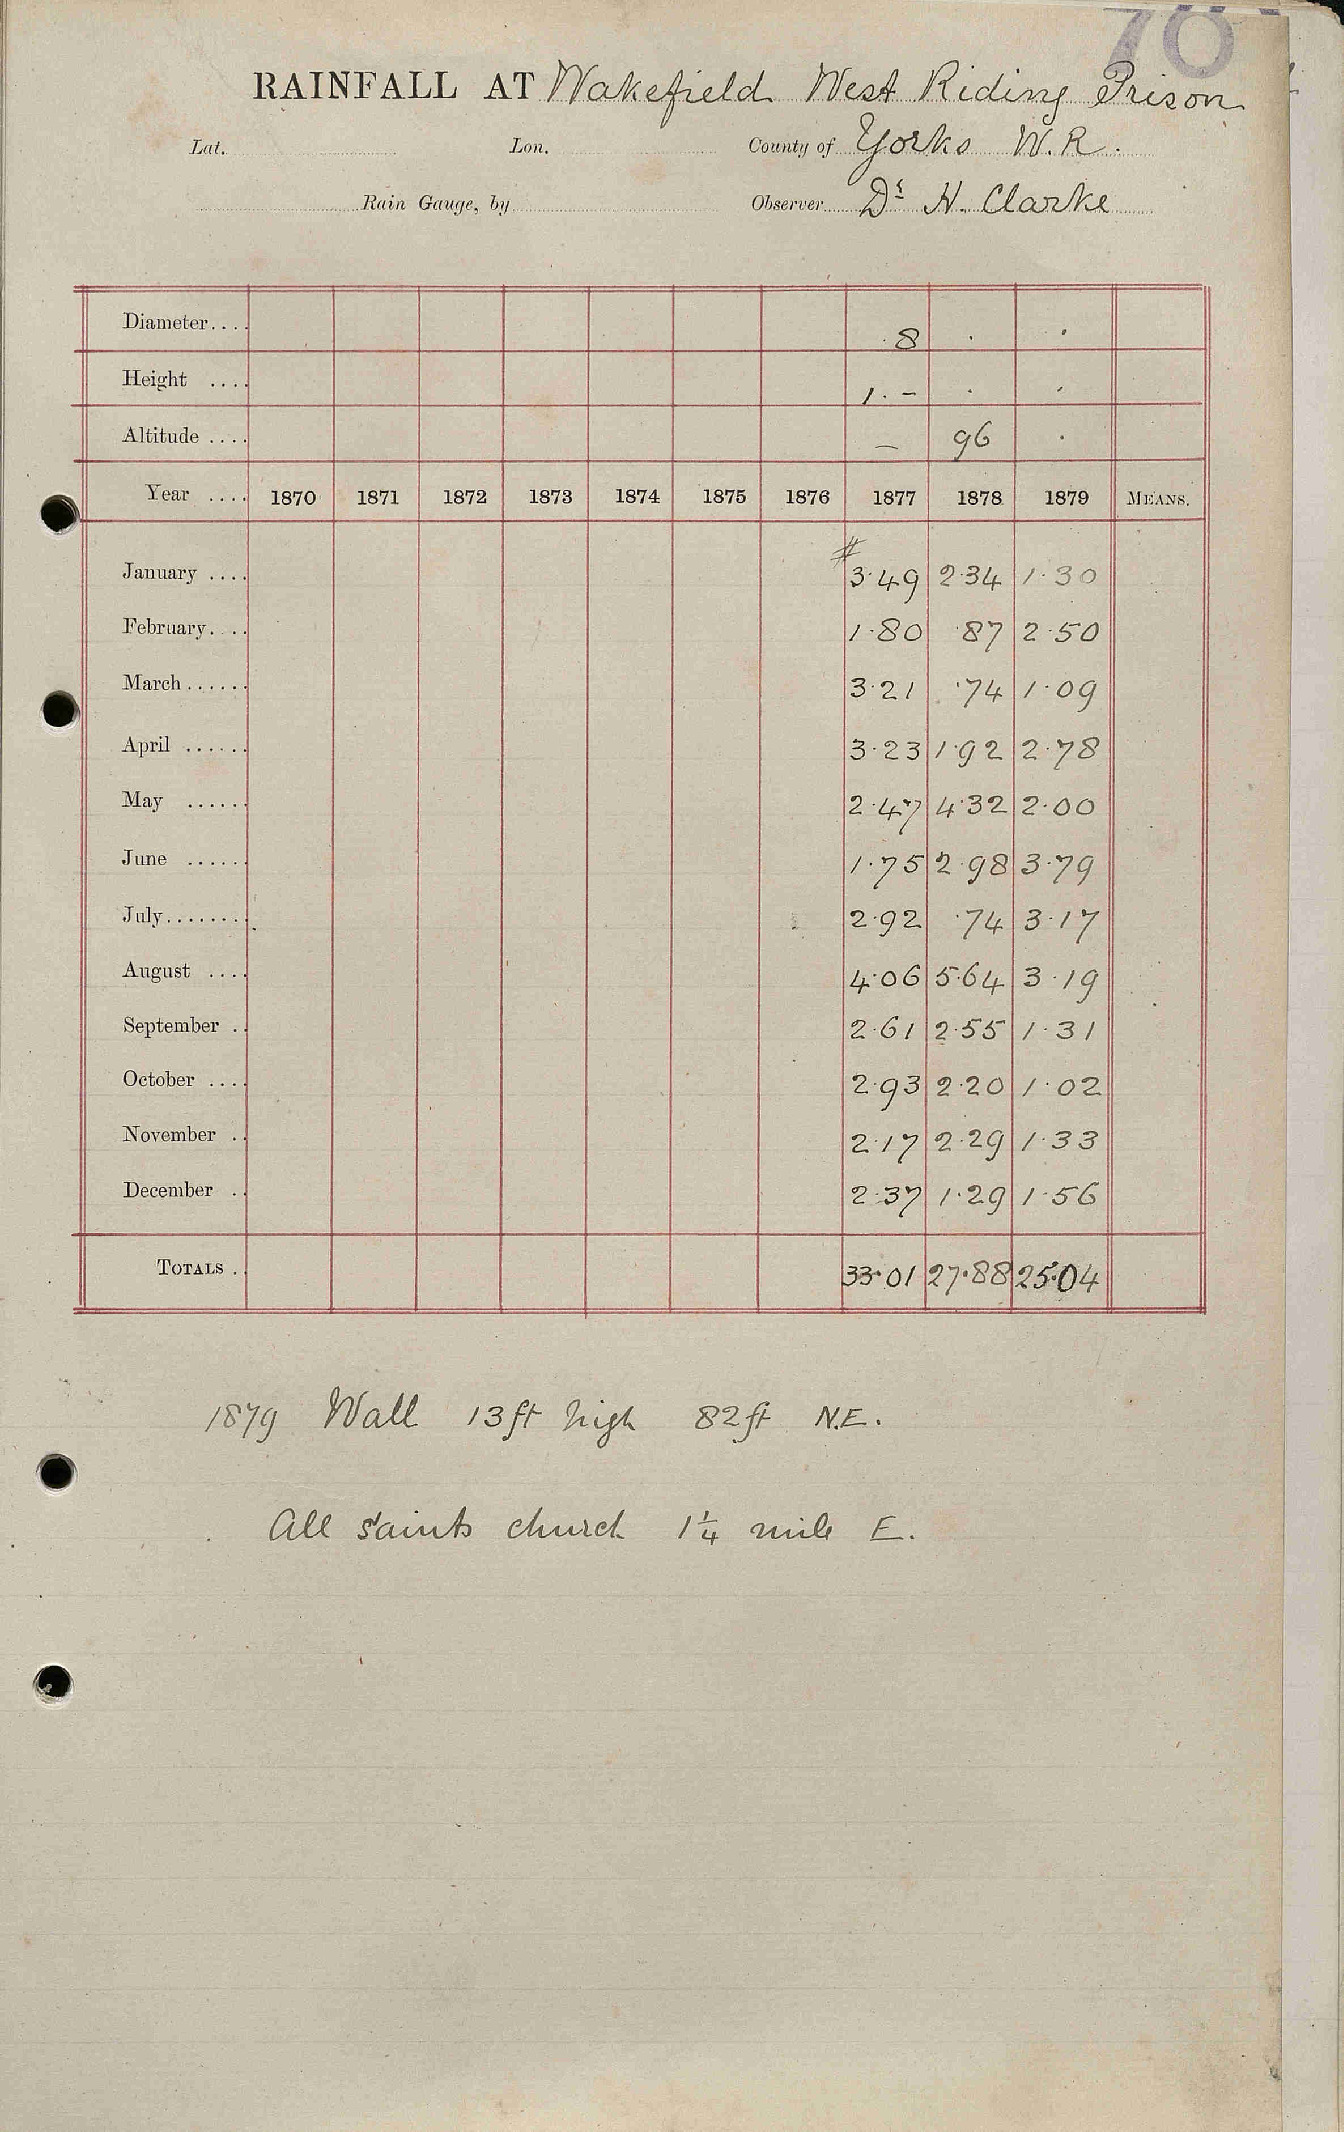 70
RAINFALL AT Wakefield West Riding Prison
Lat. Lon. County of Yorks W.R.
Rain Gauge, by Observer Dr H. Clarke
Diameter.... 8 . .
Height .... 1. - . .
Altitude .... — 96 .
Year .... 1870 1871 1872 1873 1874 1875 1876 1877 1878 1879 MEANS.
#
January .... 3.49 2.34 1.30
February.... 1.80 .87 2.50
March...... 3.21 .74 1.09
April ...... 3.23 1.92 2.78
May ...... 2.47 4.32 2.00
June ...... 1.75 2.98 3.79
July........ 2.92 .74 3.17
August .... 4.06 5.64 3.19
September .. 2.61 2.55 1.31
October .... 2.93 2.20 1.02
November .. 2.17 2.29 1.33
December .. 2.37 1.29 1.56
TOTALS .. 33.01 27.88 25.04
1879 Wall 13ft high 82ft N.E.
All Saints church 1¼ mile E.